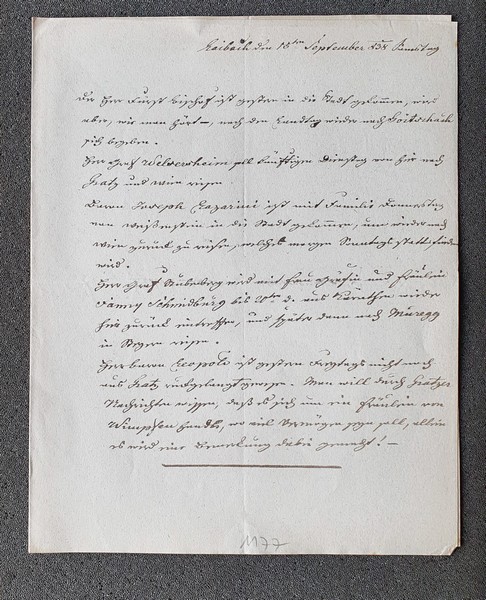 Laibach den 15ten September 838 Samstag
Der Herr Fürst Bischof ist gestern in die Stadt gekommen, wird
aber, wie man hört –, nach dem Landtag wieder nach Goitschach
sich begeben.
Herr Graf Welsersheim soll künftigen Dienstag von hier nach
Gratz und Wien reisen.
Baron Joseph Lazarini ist mit Familie Donnerstag
von Weissenstein in die Stadt gekommen, um wieder nach
Wien zurück zu reisen, welches morgen Sonntags statt finden
wird.
Herr Graf wird mit Frau Gräfin und Fräulein
Fanny Schmidburg bis 20ten d. aus Kärnthen wieder
hier zurück eintreffen, und später dann nach Mureck
in Steyer reisen.
Herr Baron Leopold ist gestern Freytags nicht noch
aus Gratz rückgelangt gewesen. Man will durch Gratzer
Nachrichten wissen, daß es sich um ein Fräulein von
Wimpfen handle, wo viel Vermögen seyn soll, allein
es wird eine Bemerkung dabei gemacht! –
1177